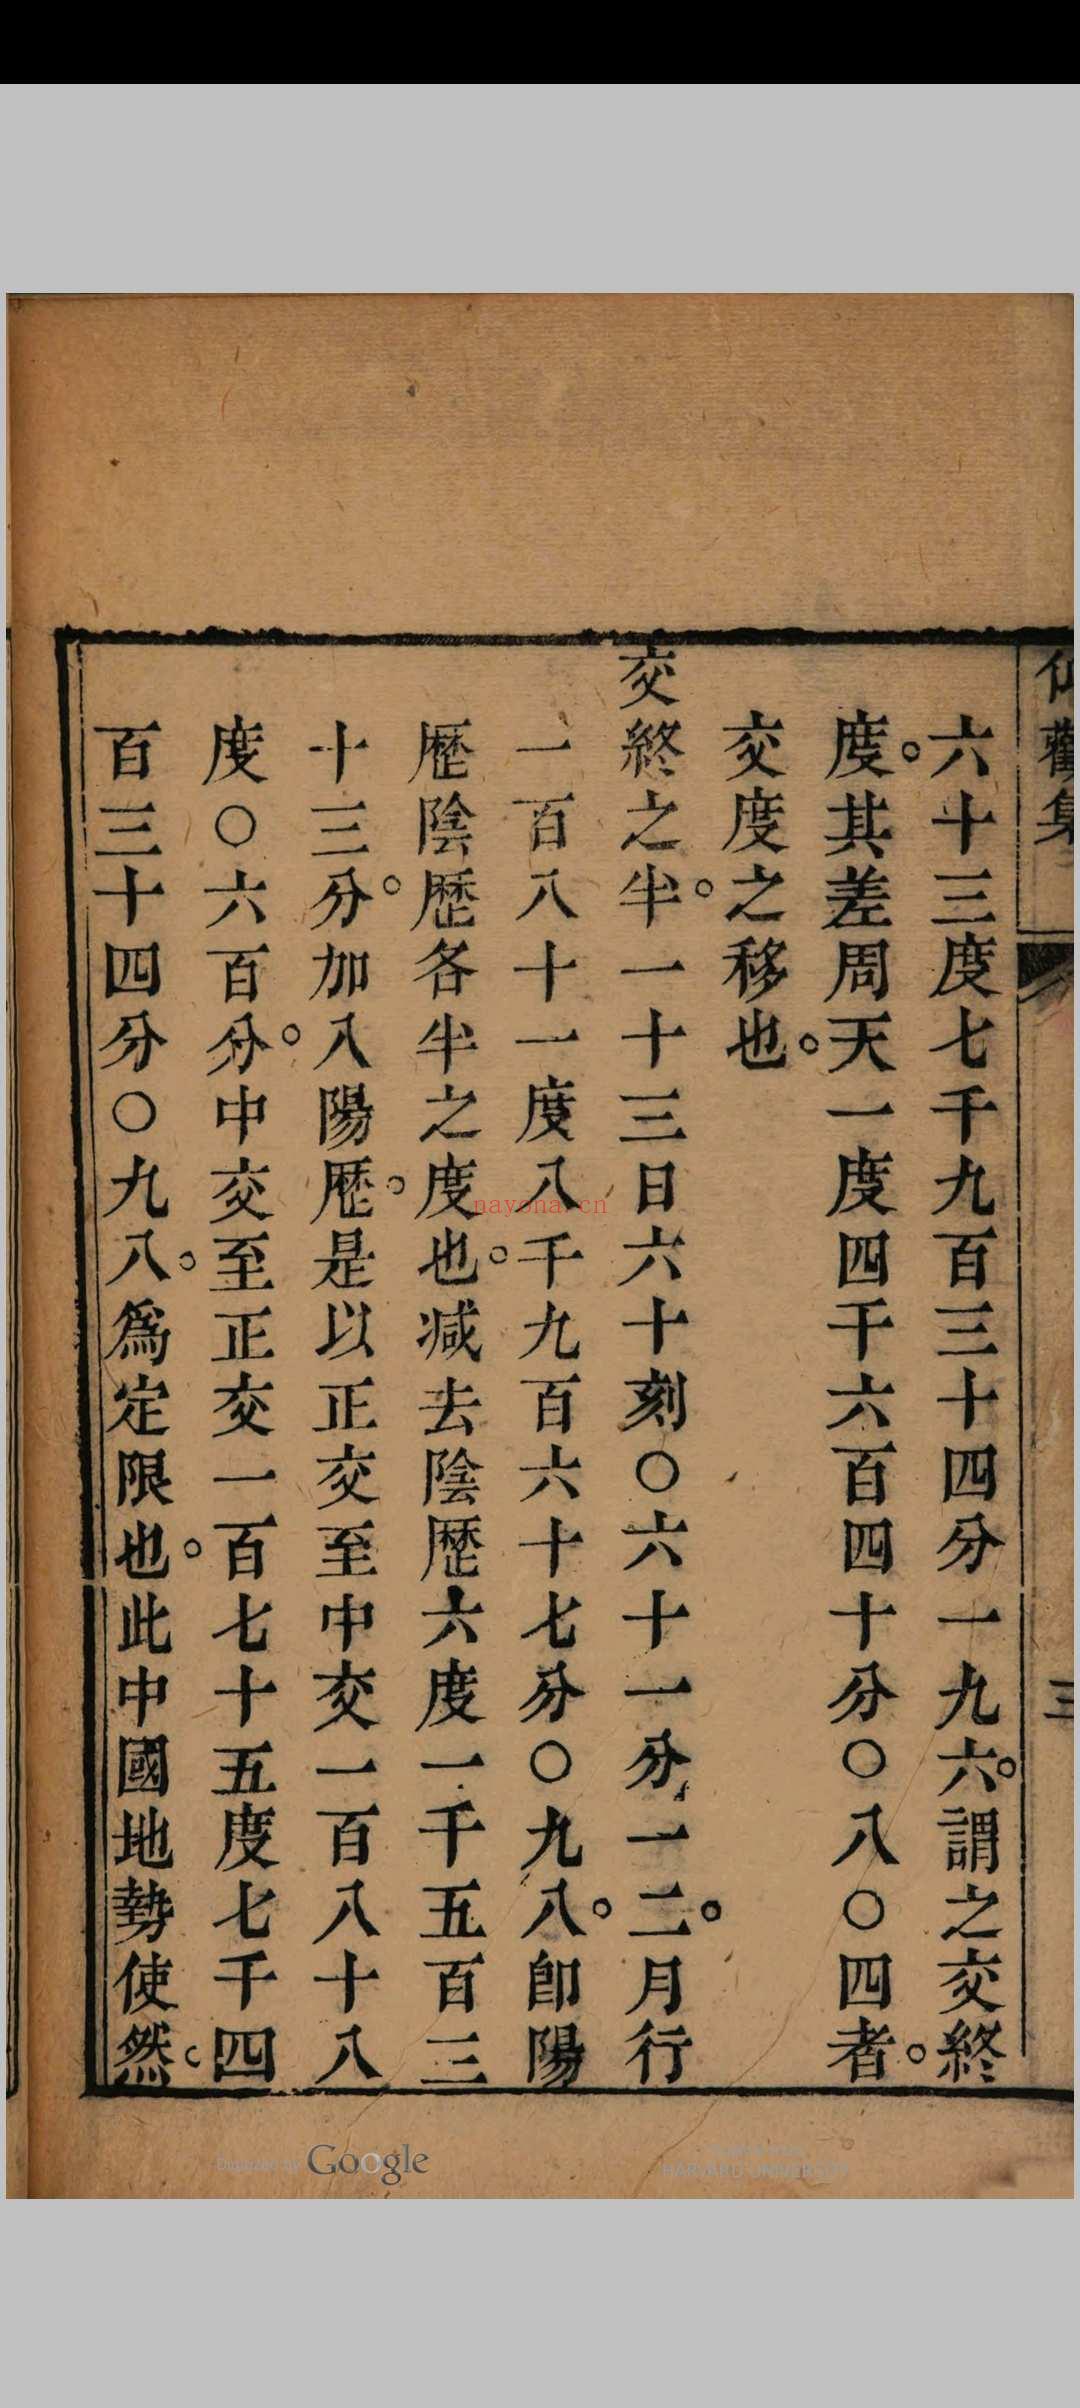 六十三度七千九百三十四分一九六。謂之交終
度。其差周天一度四千六百四十分〇八〇四者。
交度之移也。
交終之半。一十三日六十刻〇六十一分一二。月行
一百八十一度八千九百六十七分〇九八。卽陽
歷陰歷各半之度也。減去陰歷六度一千五百三
十三分。加入陽歷。是以正交至中交一百八十八
度〇六百分。中交至正交一百七十五度七千四
百三十四分〇九八。爲定限也。此中國地勢使然。
nayona.cn
Digitized by Google
HARVARD UNIVERSITY